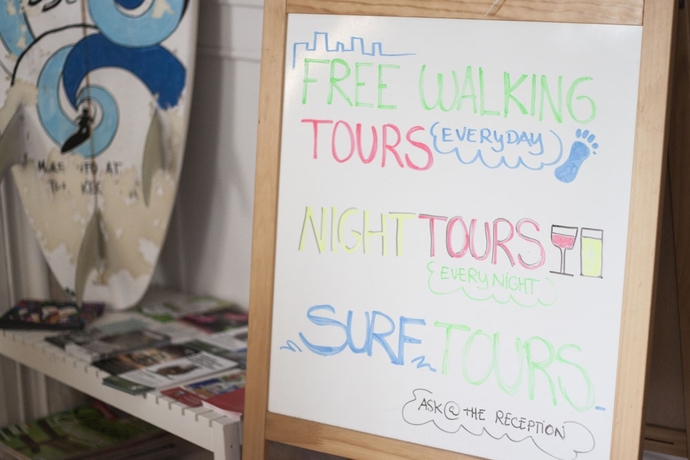 FREE WALKING
TOURS EVERYDAY
NIGHT TOURS
EVERY NIGHT
SURF TOURS
ASK @ THE RECEPTION